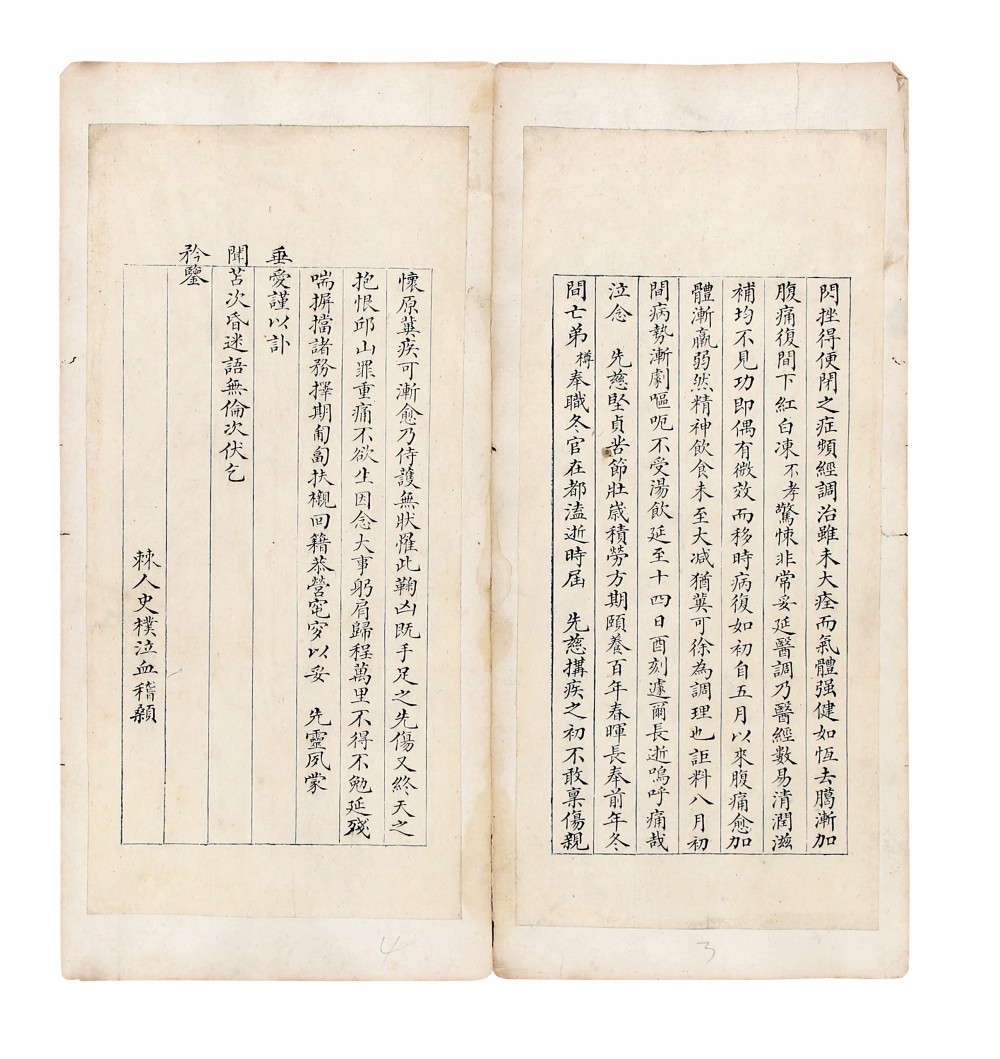 閃挫得便閉之症頻經調治雖未大痊而氣體强健如恆去臈漸加
腹痛復間下紅白凍不孝驚悚非常妥延醫調乃醫經數易清潤滋
補均不見功即偶有微效而移時病復如初自五月以來腹痛愈加
體漸羸弱然精神飲食未至大减猶冀可徐為調理也詎料八月初
間病勢漸劇嘔呃不受湯飲延至十四日酉刻遽爾長逝嗚呼痛哉
泣念 先慈堅貞苦節壯歲積勞方期頤養百年春暉長奉前年冬
間亡弟樽奉職冬官在都溘逝時届 先慈搆疾之初不敢禀傷親
3
懷原冀疾可漸愈乃侍護無狀罹此鞠凶既手足之先傷又終天之
抱恨邱山罪重痛不欲生因念大事躬肩歸程萬里不得不勉延殘
喘摒擋諸務擇期匍匐扶櫬回籍恭營窀穸以妥 先靈夙蒙
垂愛謹以訃
聞苫次昏迷語無倫次伏乞
矜鑒
棘人史樸泣血稽顙
4